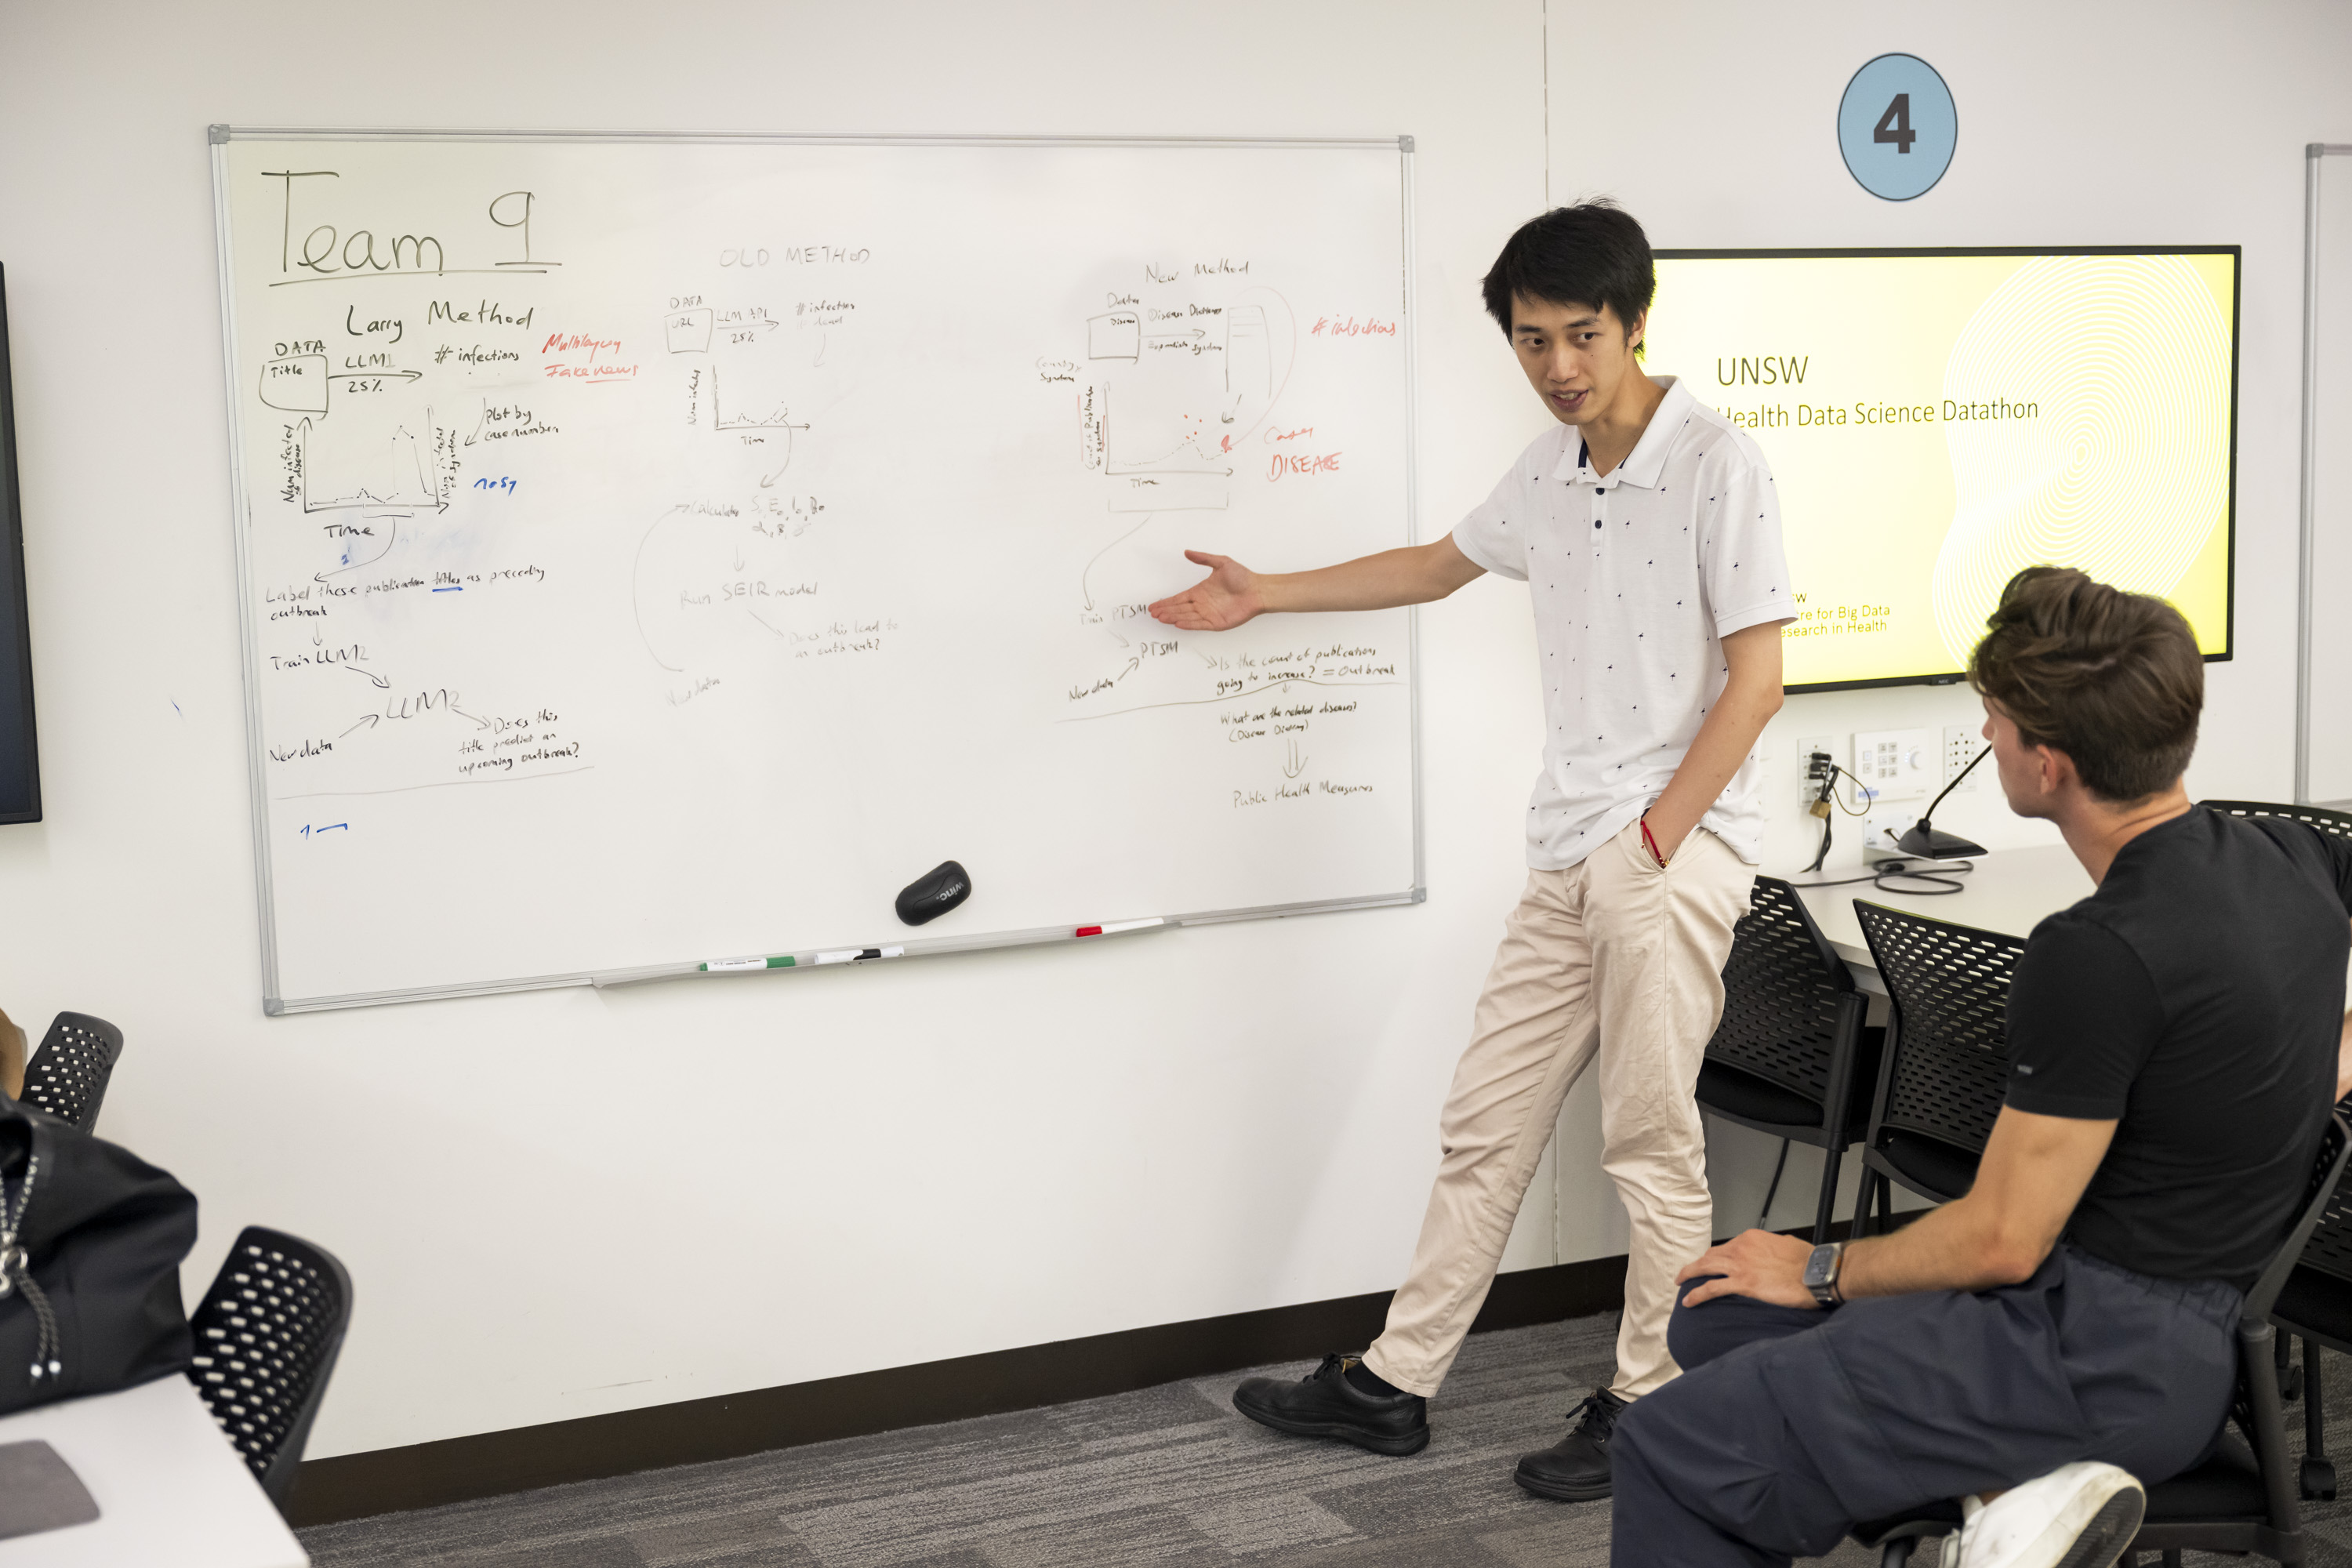 Team 9
Larry Method
DATA
Title
LLM1
25%
# infections
Fake news
plot by
case number
Num infected
of disease
Num infected
Time
Label these publication titles as preceding
outbreak
Train LLM2
LLM2
New data
Does this
title predict an
upcoming outbreak?
OLD METHOD
DATA
URL
LLM API
25%
# infection
dead
Num infected
Time
Calculate
Run SEIR model
Does this lead to
an outbreak?
New data
New Method
Data
Disease
Disease Dictionary
System
# infections
Count of Publication
Time
Cases
DISEASE
Train PTSM
PTSM
New data
Is the count of publications
going to increase? = Outbreak
What are the related diseases?
(Disease Dictionary)
Public Health Measures
winc.
4
UNSW
Health Data Science Datathon
SW
tre for Big Data
esearch in Health